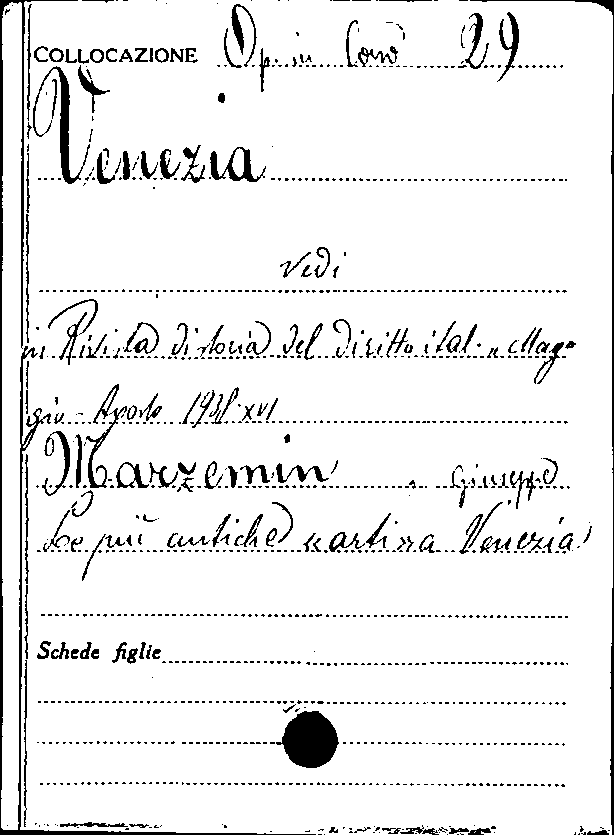 COLLOCAZIONE Op. in 29
Venezia
vedi
in Rivista di storia del diritto ital. "Mag=
gio - Agosto 1938-XVI
Marzemin, Giuseppe
Le più antiche «arti» a Venezia
Schede figlie